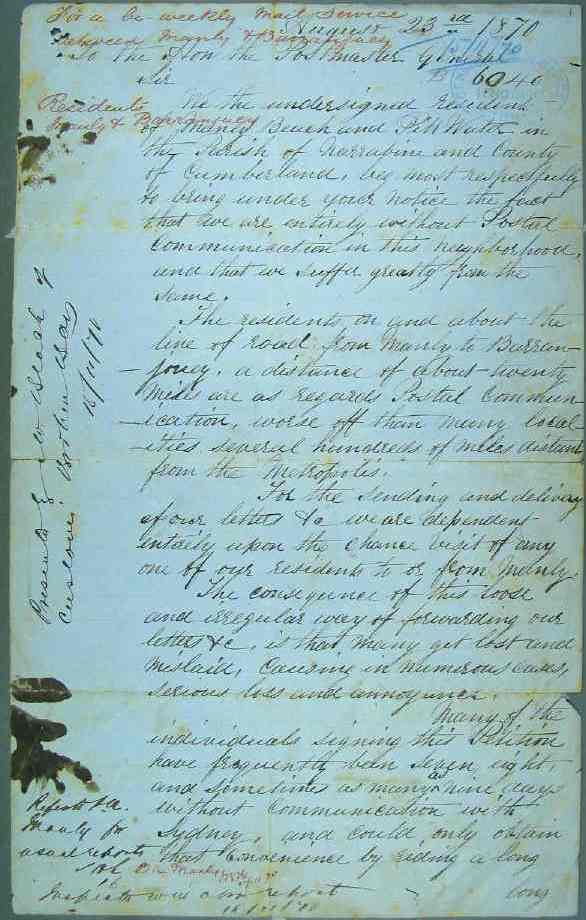 For a bi-weekly Mail Service
between Manly & Barranjuey
August 23rd 1870
15/11/70
To the Hon the Postmaster General
B 6040
Sir
Residents
Manly & Barranjuey
We the undersigned resident
of Manly Beach and Pitt Water in
the Parish of Narrabine and County
of Cumberland, beg most respectfully
to bring under your notice the fact
that we are entirely without Postal
Communication in this neighborhood,
and that we suffer greatly from the
same.
The residents on and about the
line of road from Manly to Barran-
-jouey, a distance of about twenty
Miles are as regards Postal Commun-
-ication, worse off than many local-
-ities several hundreds of miles distant
from the Metropolis.
For the sending and delivery
of our letters &c we are dependent
entirely upon the chance visit of any
one of our residents to or from Manly
The consequence of this loose
and irregular way of forwarding our
letters &c, is that many get lost and
mislaid, causing in numerous cases,
serious loss and annoyance.
Many of the
individuals signing this Petition
have frequently been seven, eight,
and sometimes as many as nine days
without Communication with
Sydney, and could only obtain
that Convenience by riding a long
long
Presented by Mr Black of
Customs Broken Bay
18/11/70
Manly for
usual reports
Inspector will also report